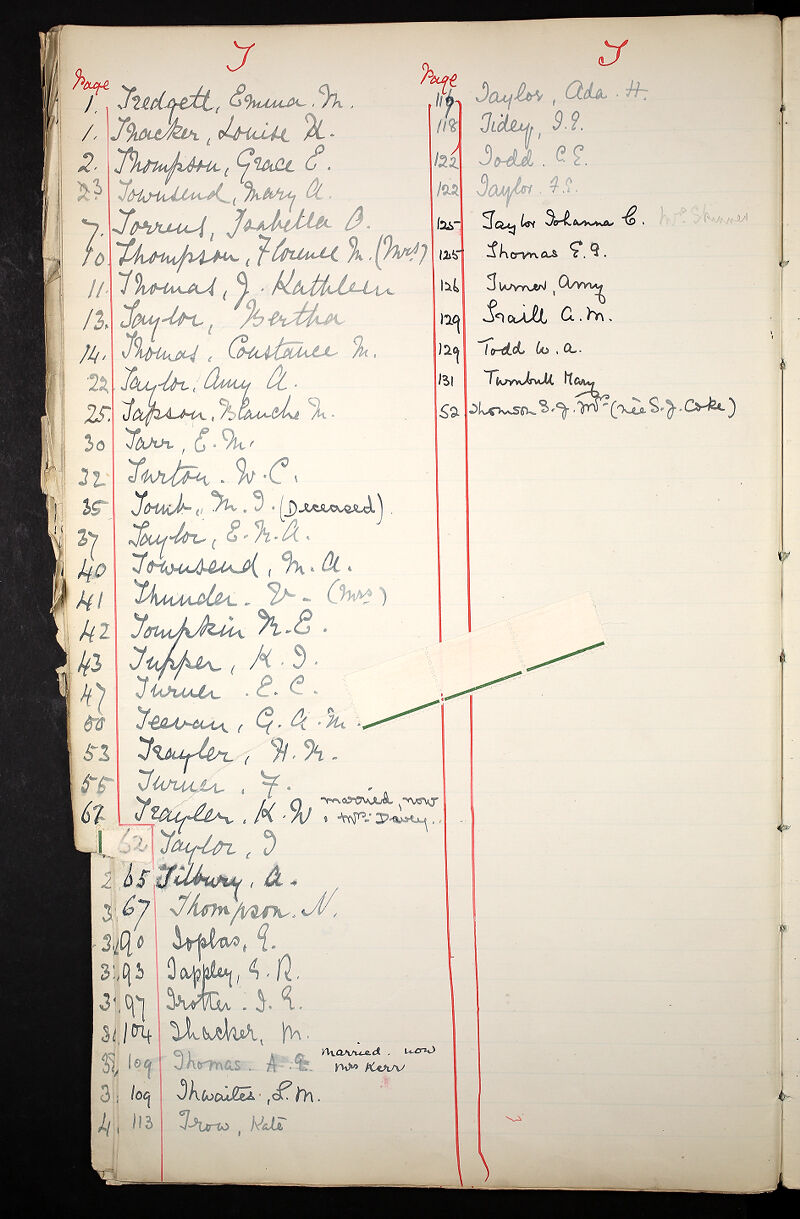 T
Page
1. Tredgett, Emma. M.
1. Thacker, Louise H.
2. Thompson, Grace E.
23 Townsend, Mary A.
7. Torrens, Isabella O.
10. Thompson, Florence M. (Mrs)
11. Thomas, J. Kathleen
13. Taylor, Bertha
14. Thomas, Constance M.
22. Taylor, Amy A.
25. Tapson, Blanche M.
30 Tarr, E. M.
32 Turton. W. C.
35 Tomb, M. I. (Deceased)
37 Taylor, E. M. A.
40 Townsend, M. A.
41 Thunder. V - (Mrs)
42 Tompkin M. E.
43 Tupper, K. I.
47 Turner. E. C.
50 Teevan, G. A. M.
53 Trayler, H. M.
55 Turner, F.
62 Trayler, K. W married, now
Mrs Davey.
62 Taylor, I
65 Tilbury, A.
67 Thompson. N.
90 Toplas, E.
93 Tappley, E. R.
97 Trotter. I. E.
104 Thacker, M.
109 Thomas. A. E. married. now
Mrs Kerr
109 Thwaites, L. M.
113 Trow, Kate
T
Page
Taylor, Ada. H.
118 Tidey, I. E.
122 Todd. C. E.
122 Taylor. F. E.
125 Taylor Johanna C. Mrs Skinner
125 Thomas E. G.
126 Turner, Amy
129 Traill A. M.
129 Todd W. A.
131 Turnbull Mary
52 Thomson S. J. Mrs (née S. J. Coke)